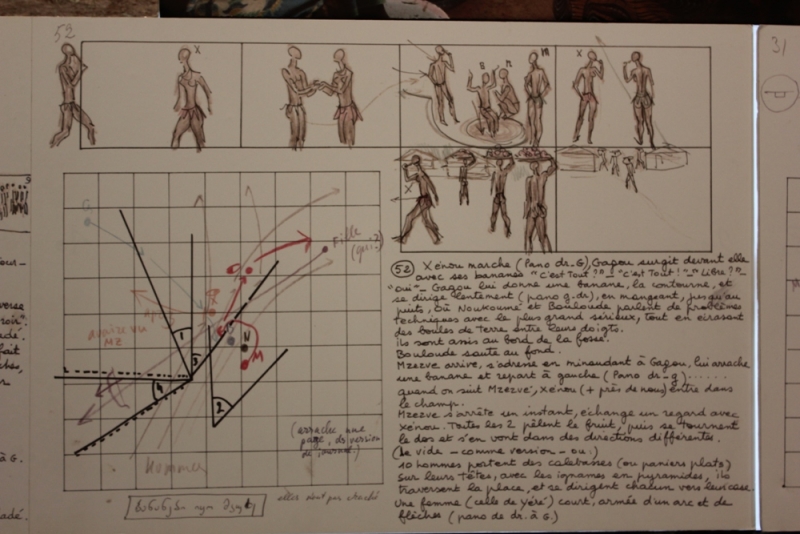 52
X
B
N
M
X
X
31
G
Fille
(qui?)
1
3
4
2
G
N
M
MZ
Hommes
(arrache une
page, ds version
elles sont pas
52 Xénou marche (Pano dr_G), Gagou surgit devant elle
avec ses bananes "c'est Tout?" _ "c'est Tout!" _ "Libre?" _
"oui" _ Gagou lui donne une banane, la contourne, et
se dirige lentement (pano g.dr), en mangeant, jusqu'au
puits, où Noukoumé et Bouloude parlent de problèmes
techniques avec le plus grand sérieux, tout en écrasant
des boules de terre entre leurs doigts.
ils sont assis au bord de la fosse.
Bouloude saute au fond.
Mzezve arrive, s'adresse en minaudant à Gagou, lui arrache
une banane et repart à gauche (Pano dr_g)......
quand on suit Mzezve, Xénou (+ près de nous) entre dans
le champ.
Mzezve s'arrête un instant, échange un regard avec
Xénou. Toutes les 2 pèlent le fruit, puis se tournent
le dos et s'en vont dans des directions différentes.
(Le vide _ comme version _ ou:)
10 hommes portent des calebasses (ou paniers plats)
sur leurs têtes, avec les ignames en pyramides, ils
traversent la place, et se dirigent chacun vers leur case.
Une femme (celle de Yéré) court, armée d'un arc et de
flèches (pano de dr. à G.)